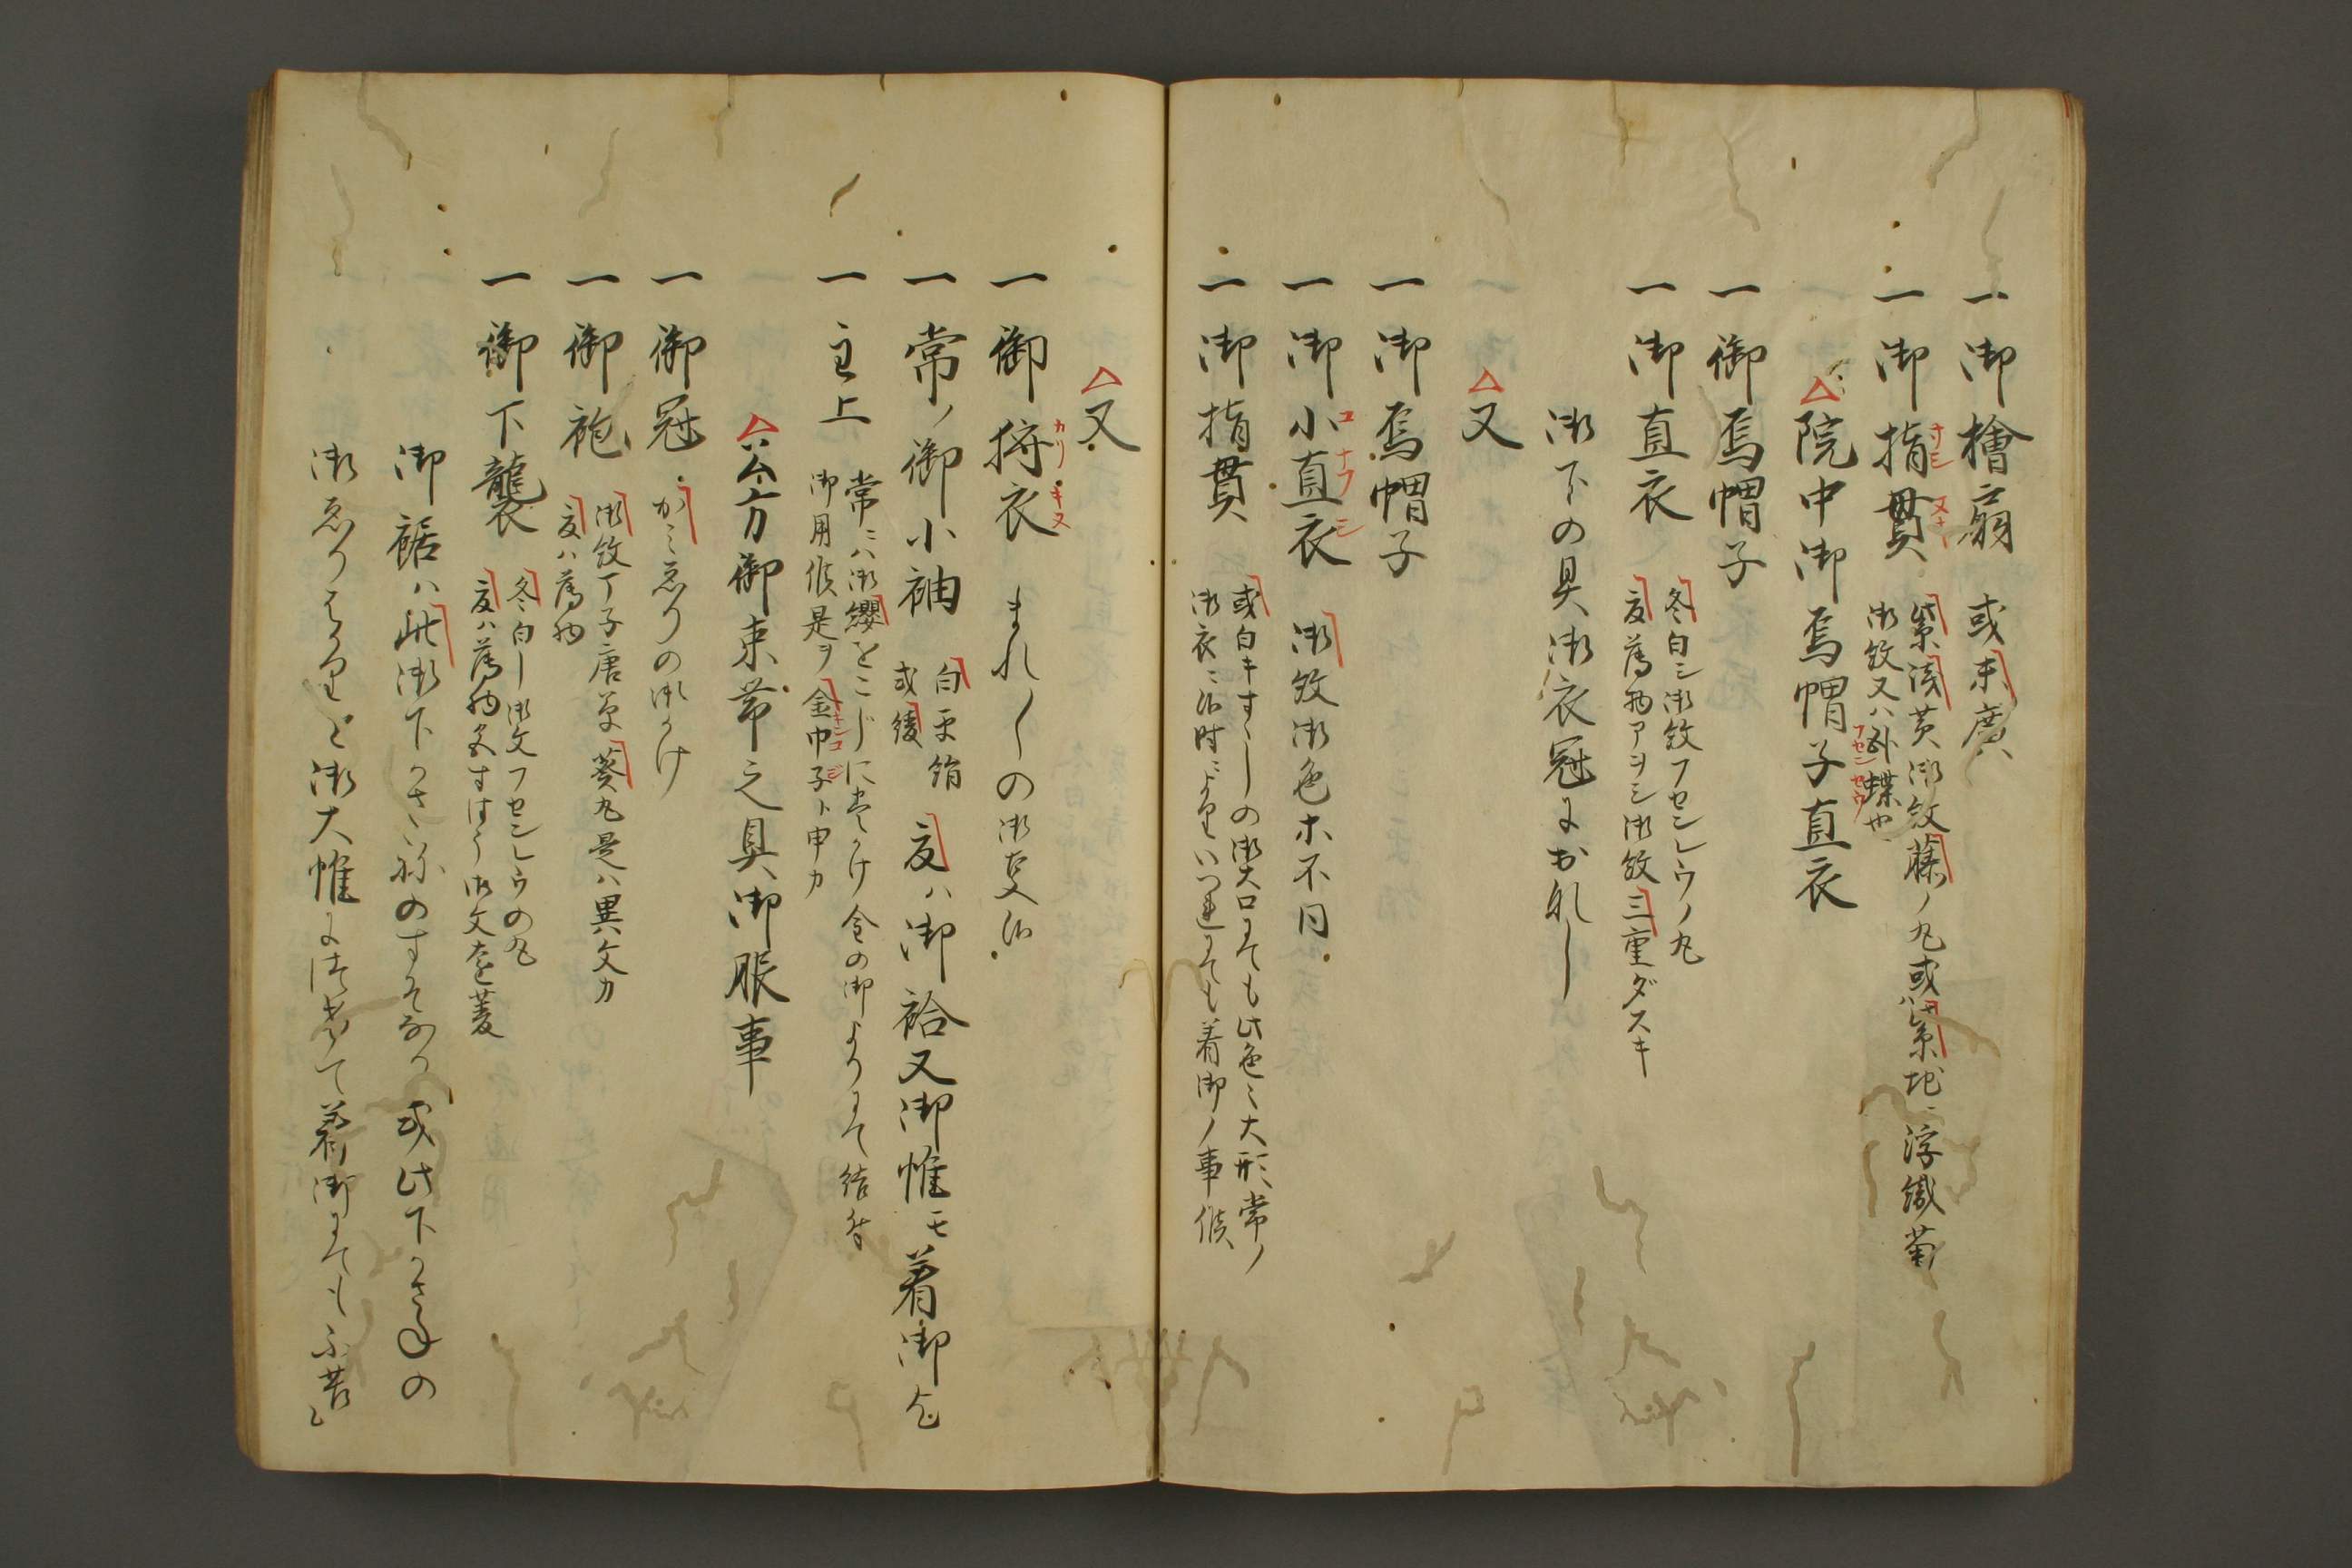 一御檜扇 或末廣
一御指貫 紫浅黄御紋藤ノ丸或ハ紫地ニ浮織菊
御紋又ハ臥蝶也
サシヌキ
フセンセウ
△院中御烏帽子直衣
一御烏帽子
一御直衣 冬白シ御紋フセンレウノ丸
夏薄物アヲシ御紋三重ダスキ
御下の具御衣冠におなし
△又
一御烏帽子
一御小直衣 御紋御色不同
コナフシ
一御指貫 或白キすゝしの御大口にても此色々大形常ノ
御衣ニ依時ニよりいつれにても着御ノ事候
△又
一御狩衣 まれ〳〵の御事候
カリキヌ
一常ノ御小袖 白平絹
或綾 夏ハ御袷又御帷モ着御也
一主上 常ニハ御纓をこじにかけ金の御よりにて結付
御用候是ヲ金巾子ト申カ
キンコジ
△公方御束帯之具御服事
一御冠 かミゑりの御かけ
一御袍 御紋丁子唐草葵丸是ハ異文カ
夏ハ薄物
一御下襲 冬白し御文フセンレウの丸
夏ハ薄物すはう御文たて菱
御裾ハ此御下かさねのすそなり或此下かさねの
御ゑりはかりと御大帷に付られて着御にても不苦